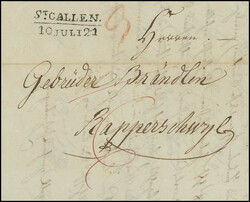 ST GALLEN.
10 JULI 21
Herren
Gebrüder Brändlin
Rapperschwyl